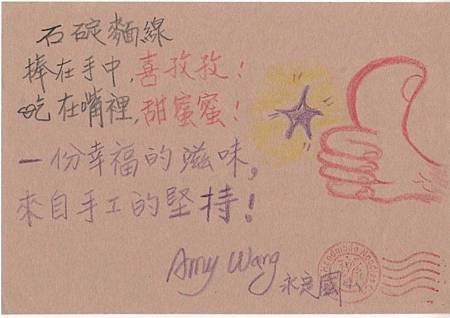 石碇麵線
捧在手中,喜孜孜!
吃在嘴裡,甜蜜蜜!
一份幸福的滋味,
來自手工的堅持!
Amy Wang
永定國小